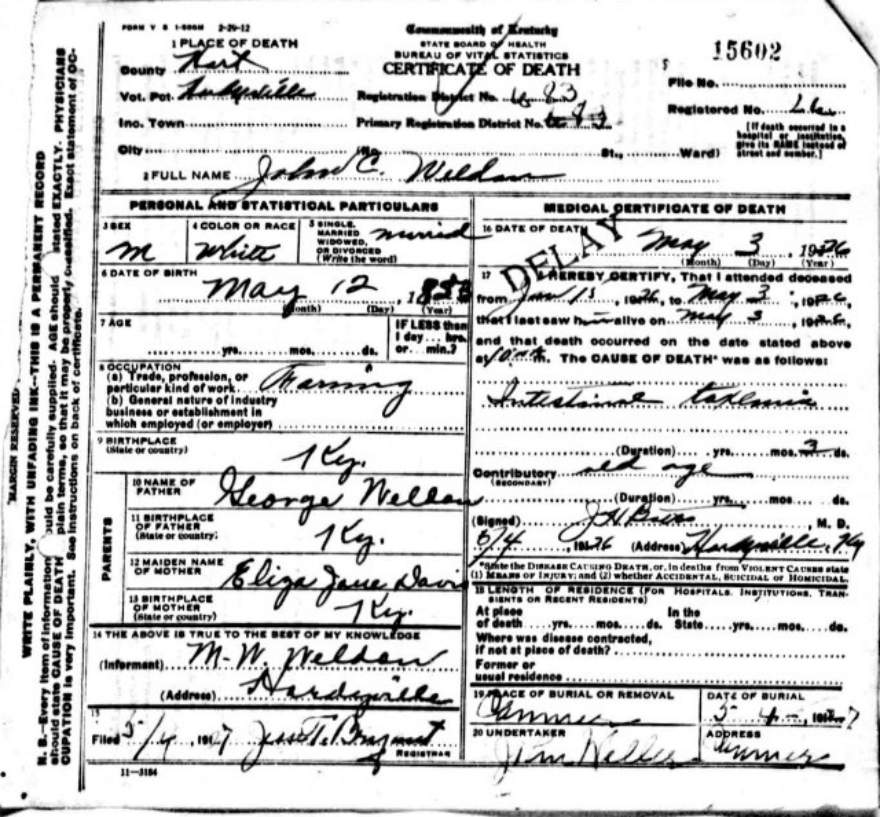 FORM V S 1-500M 2-29-12
Commonwealth of Kentucky
STATE BOARD OF HEALTH
BUREAU OF VITAL STATISTICS
CERTIFICATE OF DEATH
15602
1 PLACE OF DEATH
County Hart
Vot. Pct
Inc. Town
City
Registration District No. 683
Primary Registration District No. 683
(No. St., Ward)
File No.
Registered No.
[If death occurred in a hospital or institution, give its NAME instead of street and number.]
2 FULL NAME John C. Weldon
PERSONAL AND STATISTICAL PARTICULARS
3 SEX M
4 COLOR OR RACE White
5 SINGLE, MARRIED WIDOWED, OR DIVORCED (Write the word) married
6 DATE OF BIRTH
May 12, 185
(Month) (Day) (Year)
7 AGE
yrs. mos. ds.
IF LESS than 1 day hrs. or min.?
8 OCCUPATION
(a) Trade, profession, or particular kind of work Farming
(b) General nature of industry business or establishment in which employed (or employer)
9 BIRTHPLACE (State or country) Ky.
PARENTS
10 NAME OF FATHER George Weldon
11 BIRTHPLACE OF FATHER (State or country) Ky.
12 MAIDEN NAME OF MOTHER Eliza Jane Davis
13 BIRTHPLACE OF MOTHER (State or country) Ky.
14 THE ABOVE IS TRUE TO THE BEST OF MY KNOWLEDGE
(Informant) M.W. Weldon
(Address) Hardyville
15
Filed 5/4 1927 Jess T.
REGISTRAR
11-3184
MEDICAL CERTIFICATE OF DEATH
DELAY
16 DATE OF DEATH May 3, 1926
(Month) (Day) (Year)
17 I HEREBY CERTIFY, That I attended deceased
from Jan 13, 1926, to May 3, 1926,
that I last saw him alive on May 3, 1926,
and that death occurred on the date stated above
at 10 m. The CAUSE OF DEATH* was as follows:
Intestinal toxemia
(Duration) yrs. mos. 3 ds.
Contributory old age
(SECONDARY)
(Duration) yrs. mos. ds.
(Signed) J H , M. D.
5/4, 1926 (Address) Hardyville, Ky
*State the DISEASE CAUSING DEATH, or, in deaths from VIOLENT CAUSES state (1) MEANS OF INJURY; and (2) whether ACCIDENTAL, SUICIDAL or HOMICIDAL.
18 LENGTH OF RESIDENCE (FOR HOSPITALS, INSTITUTIONS, TRANSIENTS OR RECENT RESIDENTS)
At place of death yrs. mos. ds. In the State yrs. mos. ds.
Where was disease contracted, if not at place of death?
Former or usual residence
19 PLACE OF BURIAL OR REMOVAL
DATE OF BURIAL
5 4 - 1927
20 UNDERTAKER
Jim
ADDRESS
MARGIN RESERVED
WRITE PLAINLY, WITH UNFADING INK—THIS IS A PERMANENT RECORD
N. B.—Every item of information should be carefully supplied. AGE should stated EXACTLY. PHYSICIANS
should state CAUSE OF DEATH plain terms, so that it may be properly classified. Exact statement of OC-
CUPATION is very important. See instructions on back of certificate.